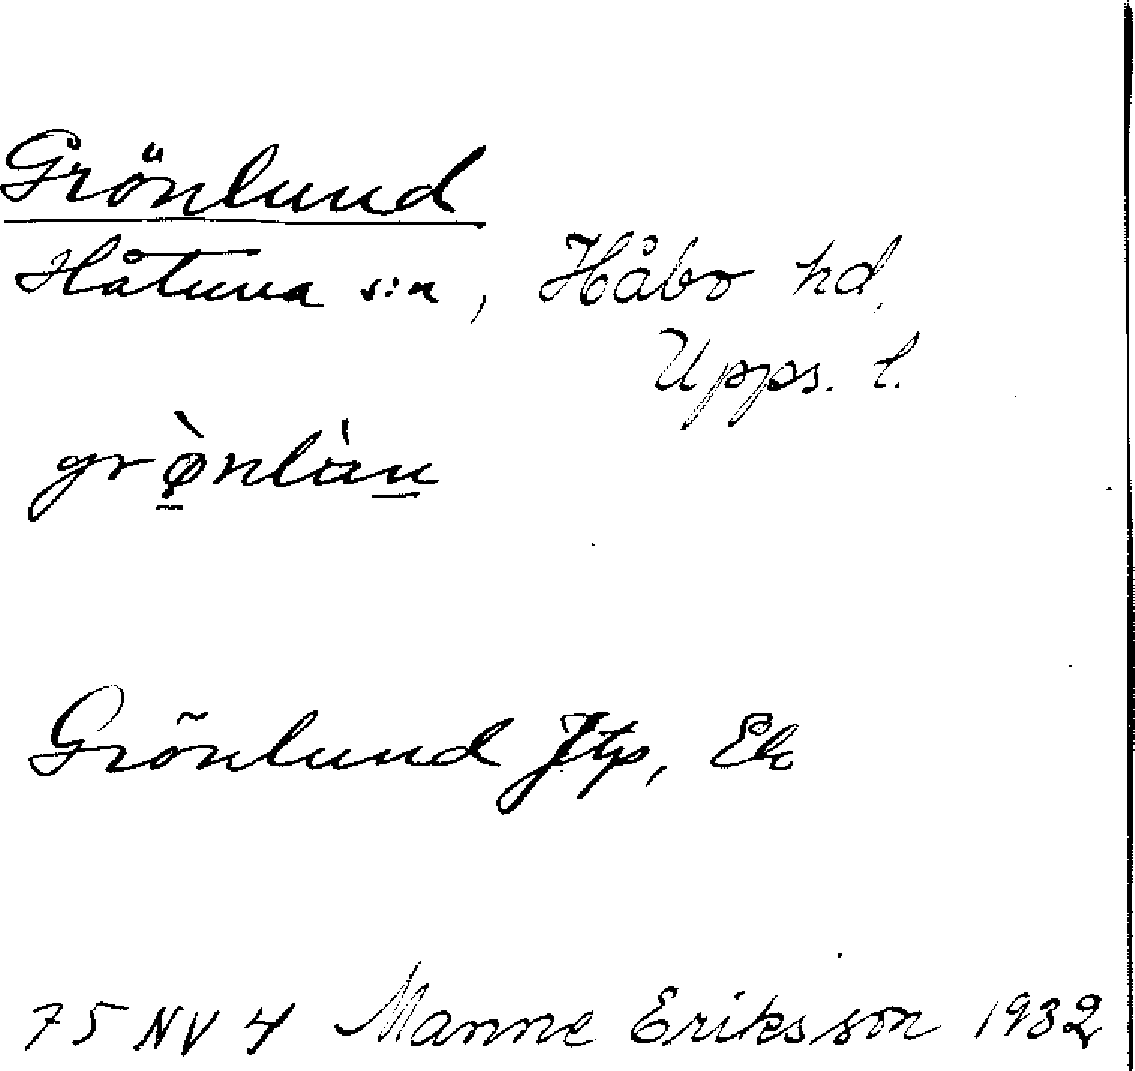 Grönlund
Håtuna s:n, Håbo hd,
Upps. l.
grø̀nlàn
Grönlund Jtp, Ek
75 NV 4 Manne Eriksson 1932